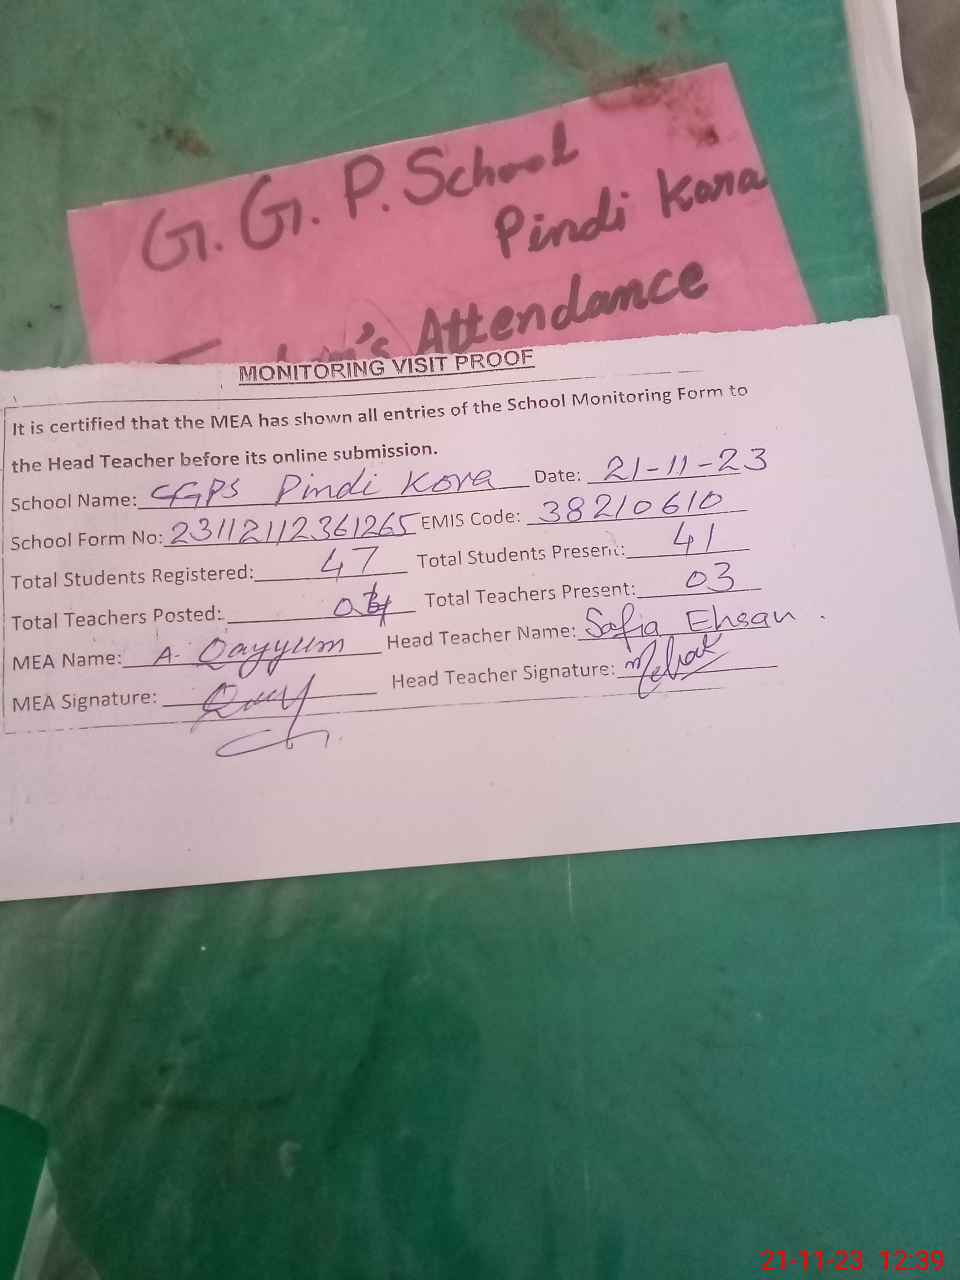 G. G. P. School
Pindi Kora
Attendance
MONITORING VISIT PROOF
It is certified that the MEA has shown all entries of the School Monitoring Form to
the Head Teacher before its online submission.
School Name: GGPS Pindi Kora Date: 21-11-23
School Form No: 23112112361265 EMIS Code: 38210610
Total Students Registered: 47 Total Students Present: 41
Total Teachers Posted: Total Teachers Present: 03
MEA Name: A. Qayyum Head Teacher Name: Safia Ehsan
MEA Signature: Head Teacher Signature:
21-11-23 12:39